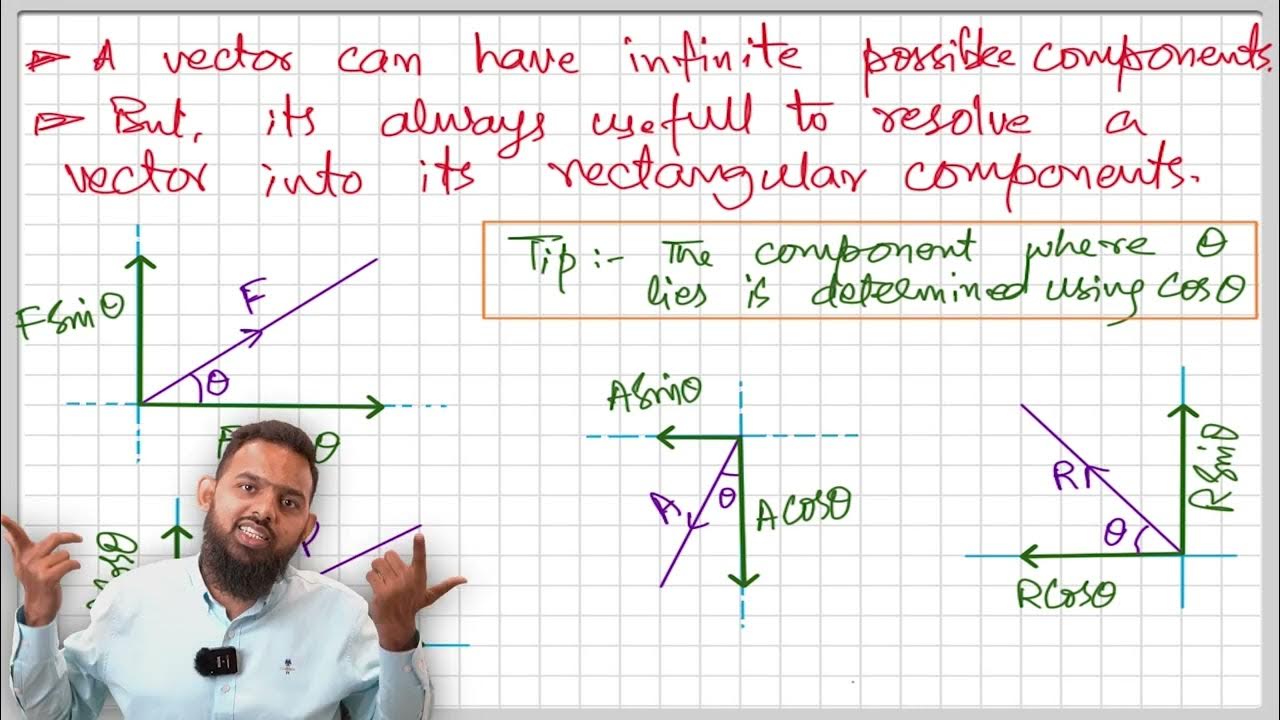 A vector can have infinite possible components.
But, its always usefull to resolve a
vector into its rectangular components.
Tip:- The component where θ
lies is determined using Cosθ
F Sinθ
F
θ
θ
A Sinθ
A
θ
A Cosθ
R
θ
R Sinθ
R Cosθ